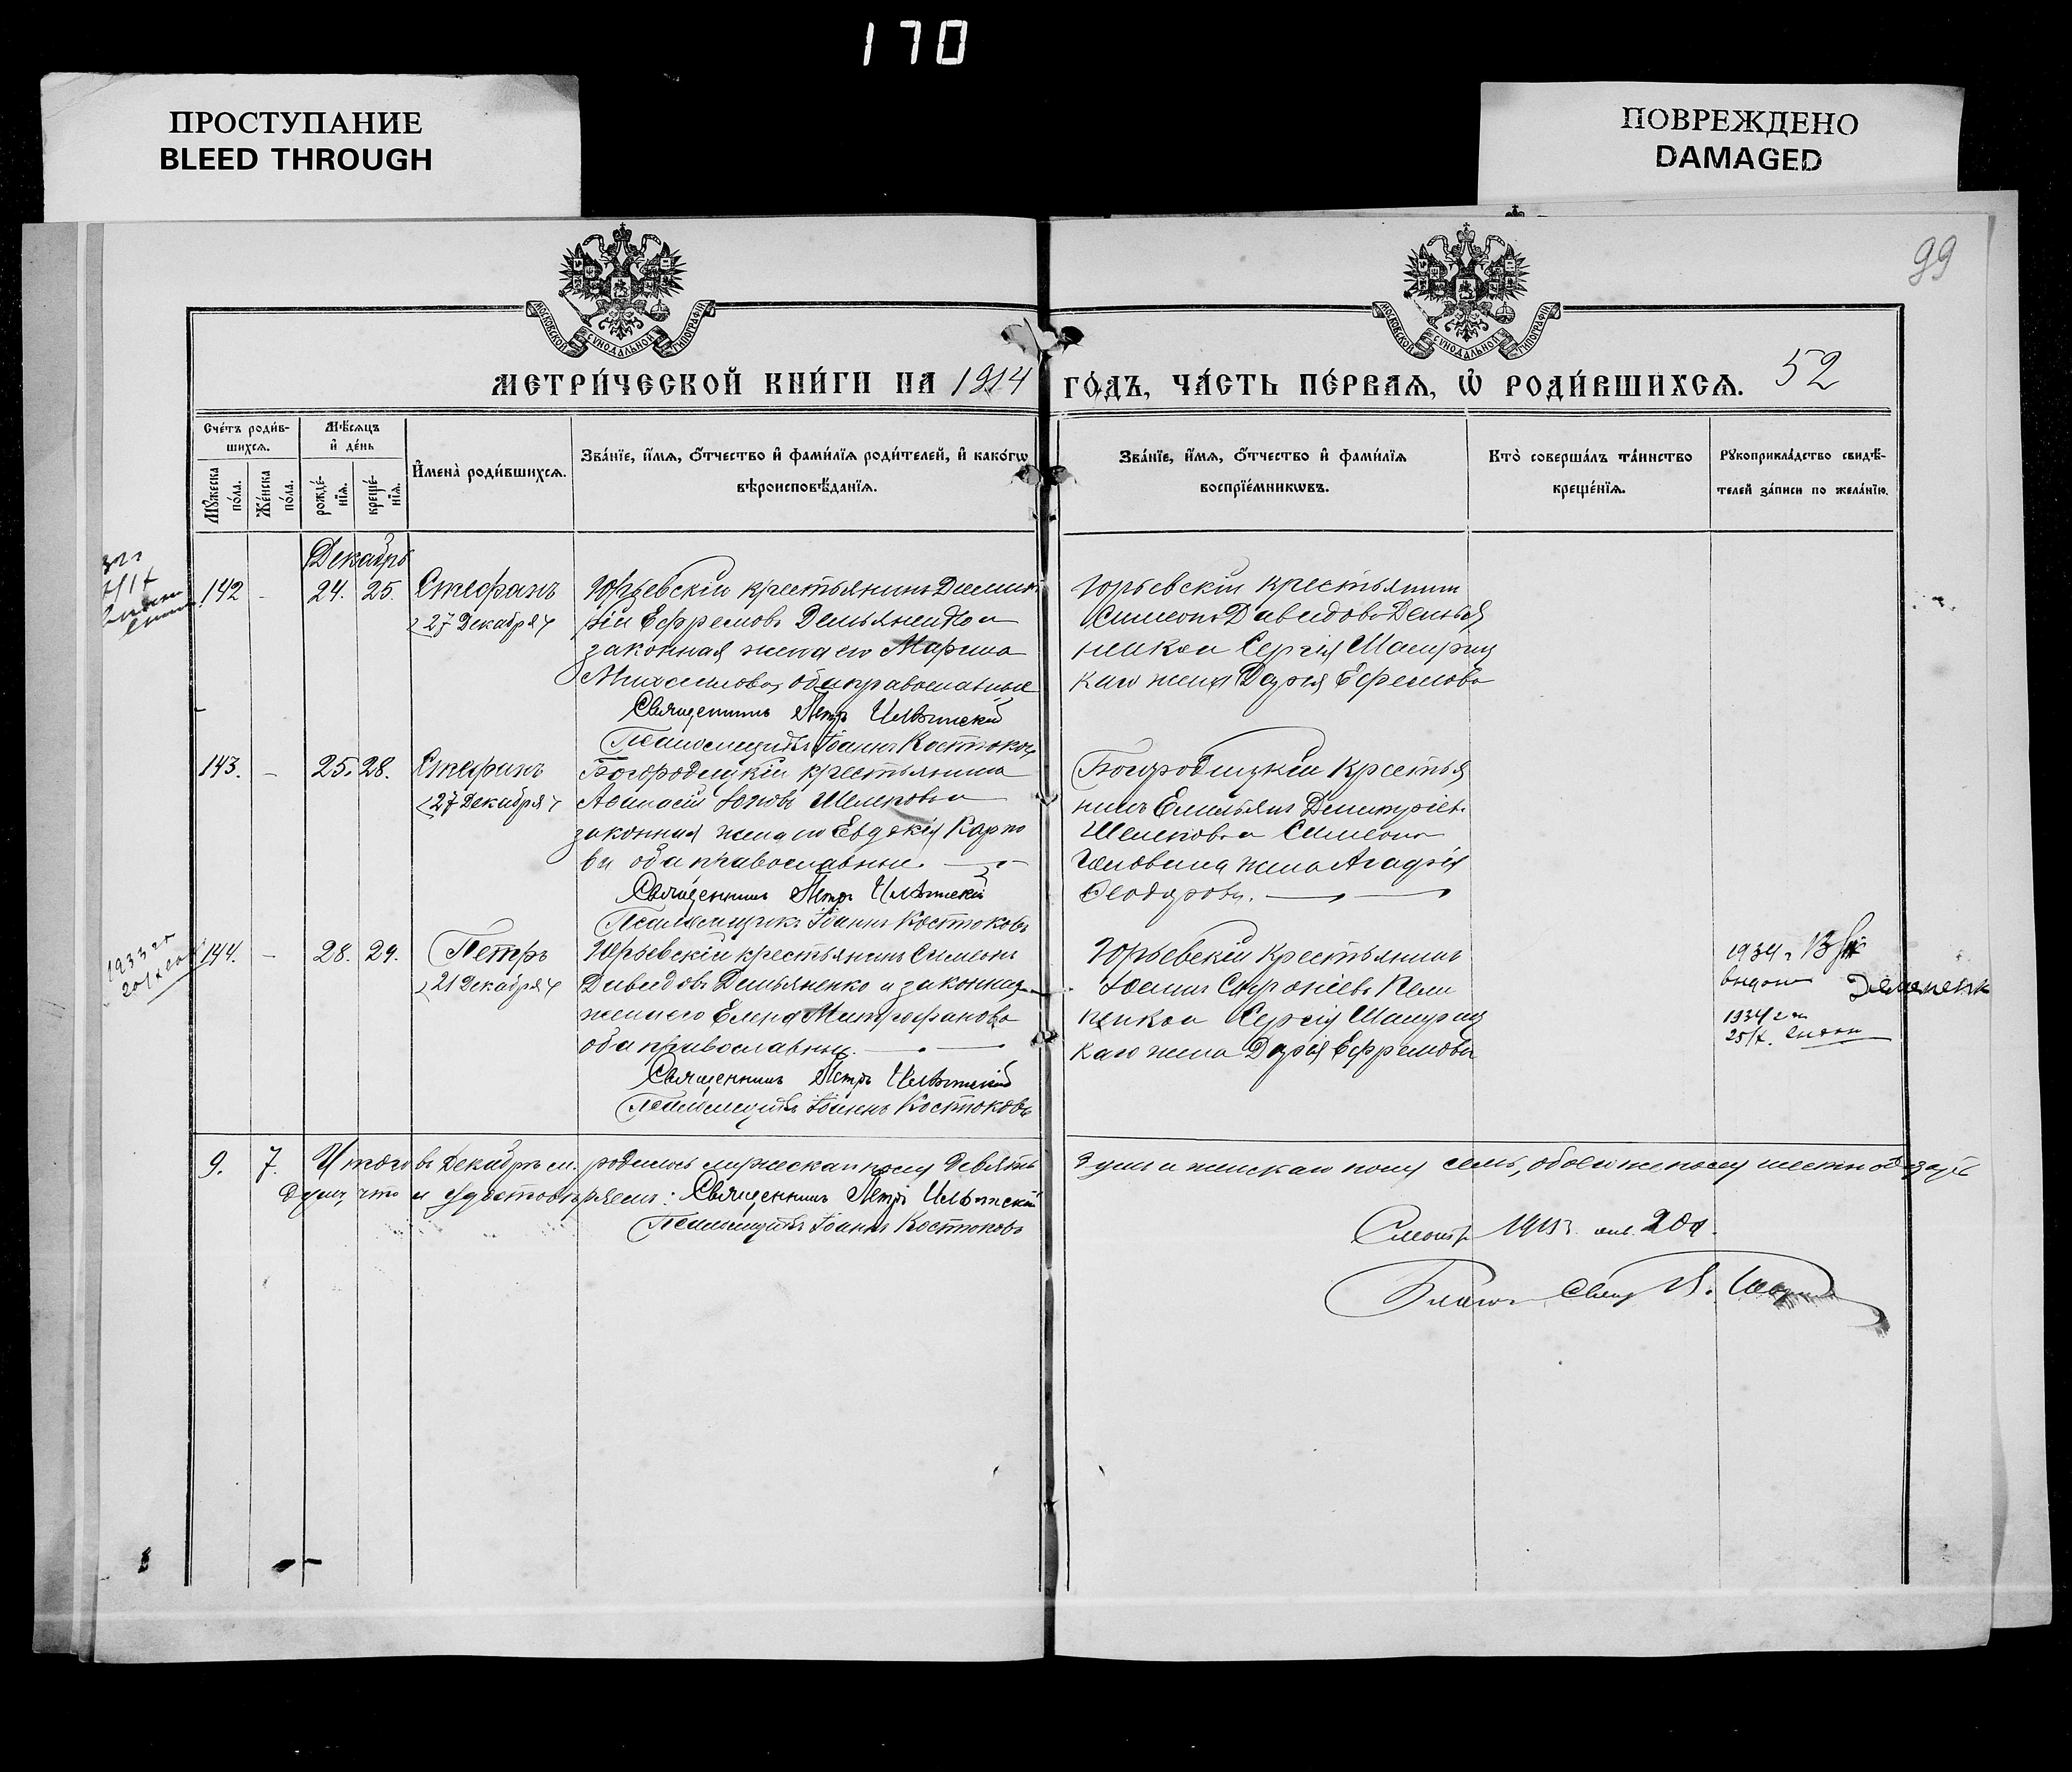 170
ПРОСТУПАНИЕ
BLEED THROUGH
ПОВРЕЖДЕНО
DAMAGED
99
МОСКОВСКОЙ СѴНОДАЛЬНОЙ ТИПОГРАФІИ
МОСКОВСКОЙ СѴНОДАЛЬНОЙ ТИПОГРАФІИ
МЕТРИ́ЧЕСКОЙ КНИ́ГИ НА 1914 ГО́ДЪ, ЧА́СТЬ ПЕ́РВАѦ, Ѡ҆ РОДИ́ВШИХСѦ. 52
Сче́тъ роди́в-
шихсѧ.
Мꙋ́жеска
по́ла.
Же́нска
по́ла.
Мѣ́сѧцъ
и҆ де́нь
рожде́-
нїѧ.
креще́-
нїѧ.
И҆мена̀ роди́вшихсѧ.
Зва́нїе, и҆́мѧ, ѻ҆́тчество и҆ фами́лїѧ роди́телей, и҆ како́гѡ
вѣроисповѣ́данїѧ.
Зва́нїе, и҆́мѧ, ѻ҆́тчество и҆ фами́лїѧ
воспрїе́мникѡвъ.
Кто̀ соверша́лъ та́инство
креще́нїѧ.
Рꙋкоприкла́дство свидѣ́-
телей за́писи по жела́нїю.
Декабрь
142 - 24. 25. Стефанъ
27 Декабря
Юрьевскій крестьянинъ Димит
рій Ефремовъ Демьяненко и
законная жена его Марина
Михаилова, оба православные
Священникъ Петръ
Псаломщикъ Іоаннъ Костюковъ
Юрьевскій крестьянинъ
Симеонъ Давидовъ Демья
ненко и Сергія
каго жена Дарія Ефремова
143. - 25. 28. Стефанъ
27 Декабря
Богородицкій крестьянинъ
Аѳанасій Іоновъ и
законная жена его Евдокія Карпо
ва оба православные.
Священникъ Петръ
Псаломщикъ Іоаннъ Костюковъ
Богородицкій крестья
нинъ Емельянъ Димитріев.
и Симеона
жена Агафія
Ѳеодорова.
1933 г
144. - 28. 29. Петръ
21 Декабря
Юрьевскій крестьянинъ Симеонъ
Давидовъ Демьяненко и законная
жена его Елена Митрофанова
оба православные.
Священникъ Петръ
Псаломщикъ Іоаннъ Костюковъ
Юрьевскій крестьянинъ
Іоаннъ Софроніевъ
и Сергія
каго жена Дарія Ефремова
1934 г
1934 г
25/X
9. 7. Итого въ Декабрѣ м. родилось мужескаго полу девять
душъ и женскаго полу семь, обоего же полу шестнадцать
душъ, что и удостовѣряемъ: Священникъ Петръ
Псаломщикъ Іоаннъ Костюковъ